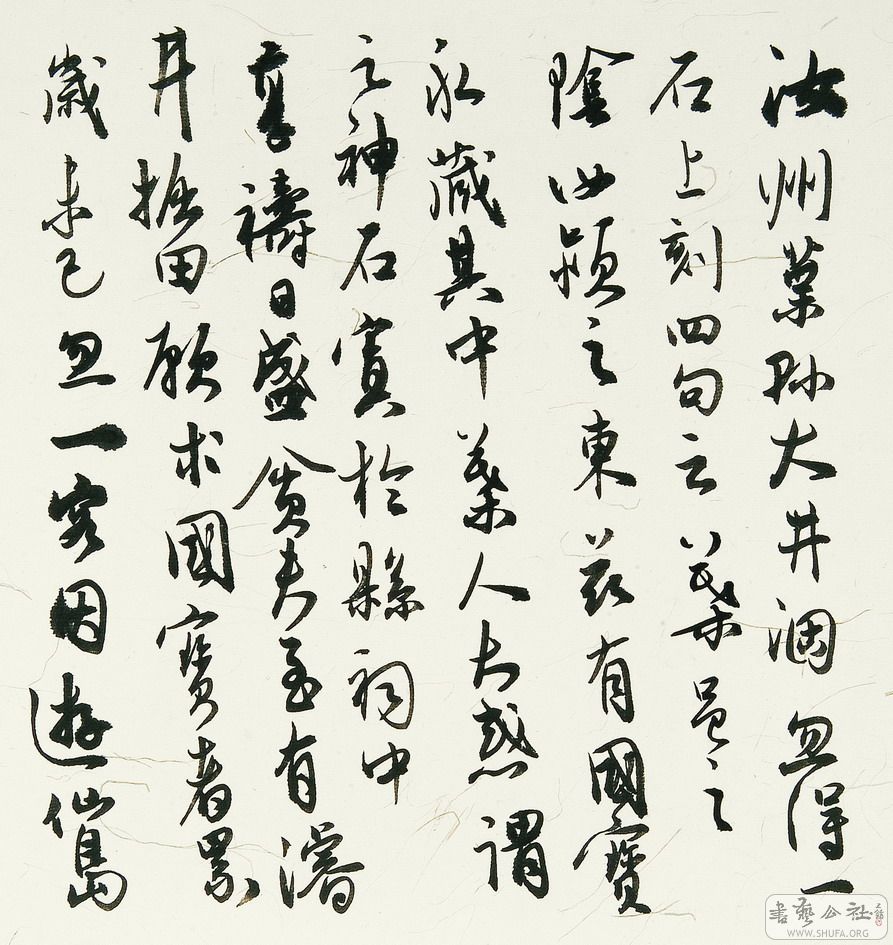 汝州葉縣大井涸忽得一
石上刻四句云葉邑之
陰汝潁之東茲有國寶
永藏其中葉人大惑謂
之神石寘於縣祠中
享禱日盛貧夫至有濬
井掘田願求國寶者累
歲未已忽一客因遊仙島
書藝公社
WWW.SHUFA.ORG